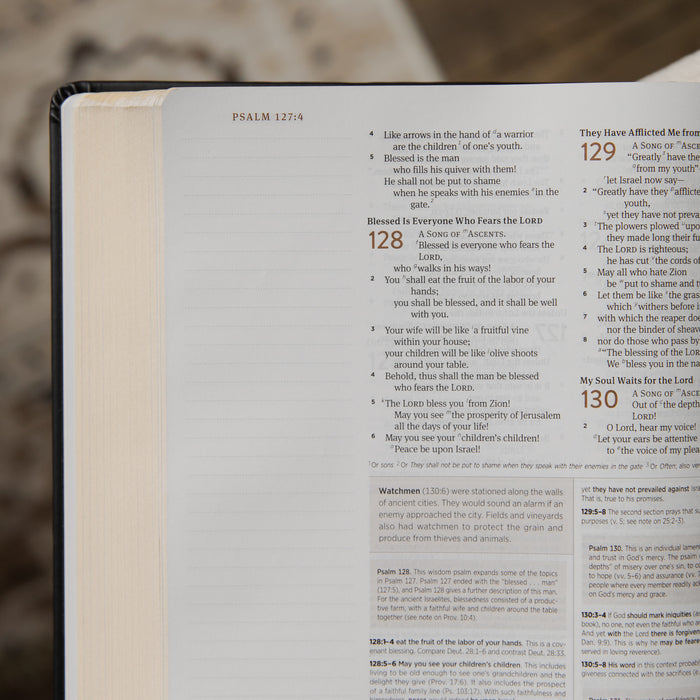 PSALM 127:4
4 Like arrows in the hand of a warrior
are the children of one's youth.
5 Blessed is the man
who fills his quiver with them!
He shall not be put to shame
when he speaks with his enemies in the
gate.
Blessed Is Everyone Who Fears the LORD
128 A SONG OF ASCENTS.
Blessed is everyone who fears the
LORD,
who walks in his ways!
2 You shall eat the fruit of the labor of your
hands;
you shall be blessed, and it shall be well
with you.
3 Your wife will be like a fruitful vine
within your house;
your children will be like olive shoots
around your table.
4 Behold, thus shall the man be blessed
who fears the LORD.
5 The LORD bless you from Zion!
May you see the prosperity of Jerusalem
all the days of your life!
6 May you see your children's children!
Peace be upon Israel!
They Have Afflicted Me from
129 A SONG OF
"Greatly have the
from my youth"
let Israel now say—
2 "Greatly have they
youth,
yet they have not
3 The plowers plowed
they made long their
4 The LORD is righteous;
he has cut the cords of
5 May all who hate Zion
be put to shame and
6 Let them be like the
which withers before
7 with which the reaper
nor the binder of
8 nor do those who pass by
"The blessing of the
We bless you in the
My Soul Waits for the Lord
130 A SONG OF
Out of the
LORD!
2 O Lord, hear my voice!
Let your ears be attentive
to the voice of my
1 Or sons 2 Or They shall not be put to shame when they speak with their enemies in the gate 3 Or Often; also
Watchmen (130:6) were stationed along the walls
of ancient cities. They would sound an alarm if an
enemy approached the city. Fields and vineyards
also had watchmen to protect the grain and
produce from thieves and animals.
Psalm 128. This wisdom psalm expands some of the topics
in Psalm 127. Psalm 127 ended with the "blessed . . . man"
(127:5), and Psalm 128 gives a further description of this man.
For the ancient Israelites, blessedness consisted of a produc-
tive farm, with a faithful wife and children around the table
together (see note on Prov. 10:4).
128:1–4 eat the fruit of the labor of your hands. This is a cov-
enant blessing. Compare Deut. 28:1–6 and contrast Deut. 28:33.
128:5–6 May you see your children's children. This includes
living to be old enough to see one's grandchildren and the
delight they give (Prov. 17:6). It also includes the prospect
of a faithful family line (Ps. 103:17). With such faithfulness and
yet they have not prevailed against
That is, true to his promises.
129:5–8 The second section prays that
purposes (v. 5; see note on 25:2–3).
Psalm 130. This is an individual
and trust in God's mercy. The psalm
depths" of misery over one's sin, to
to hope (vv. 5–6) and assurance (vv.
people where every member readily
on God's mercy and grace.
130:3–4 If God should mark iniquities
book), no one, not even the faithful who
And yet with the Lord there is
Dan. 9:9). This is why he may be
served in loving reverence).
130:5–8 His word in this context
giveness connected with the sacrifices